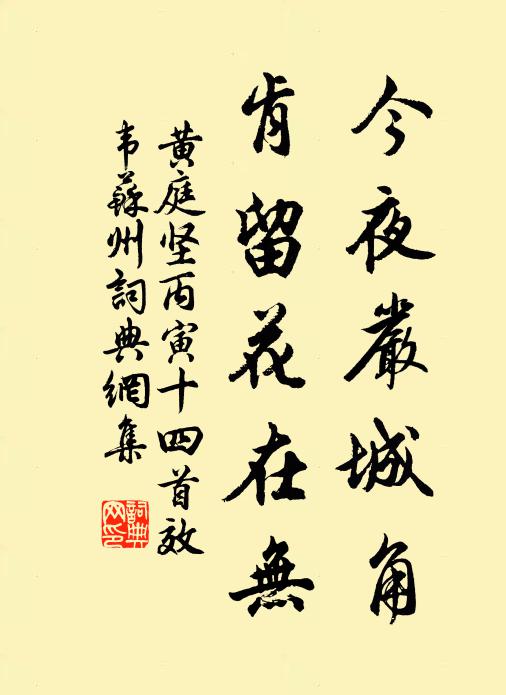 今夜嚴城角
肯留花在無
黄庭坚丙寅十四首效
韦蘇州詞典網集
詞典
网印